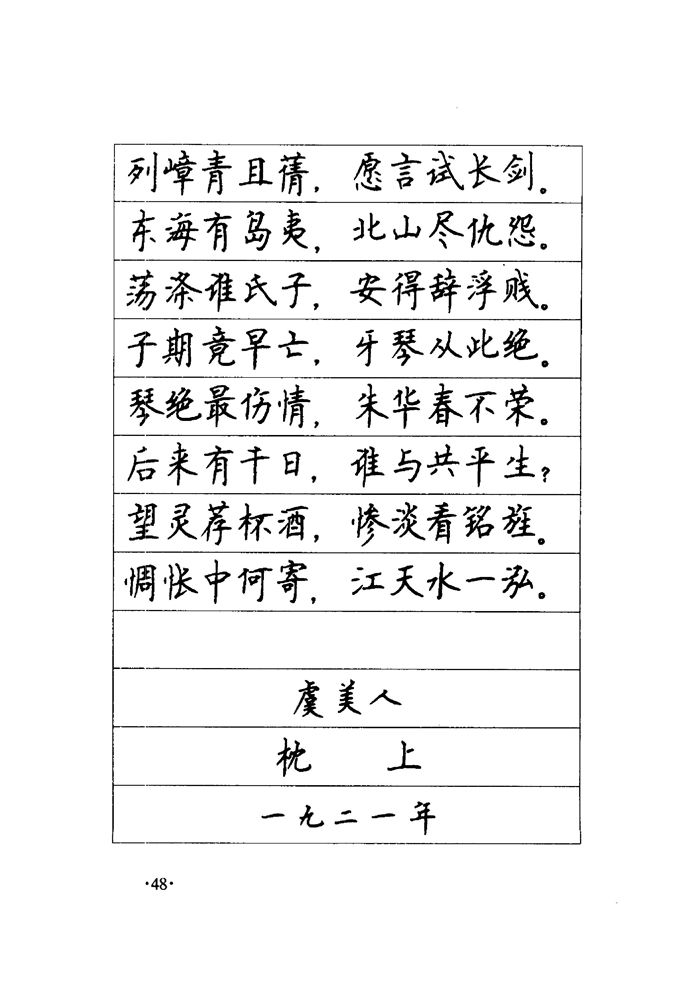 列嶂青且蒨，愿言试长剑。
东海有岛夷，北山尽仇怨。
荡涤谁氏子，安得辞浮贱。
子期竟早亡，牙琴从此绝。
琴绝最伤情，朱华春不荣。
后来有千日，谁与共平生？
望灵荐杯酒，惨淡看铭旌。
惆怅中何寄，江天水一泓。
虞美人
枕 上
一九二一年
·48·